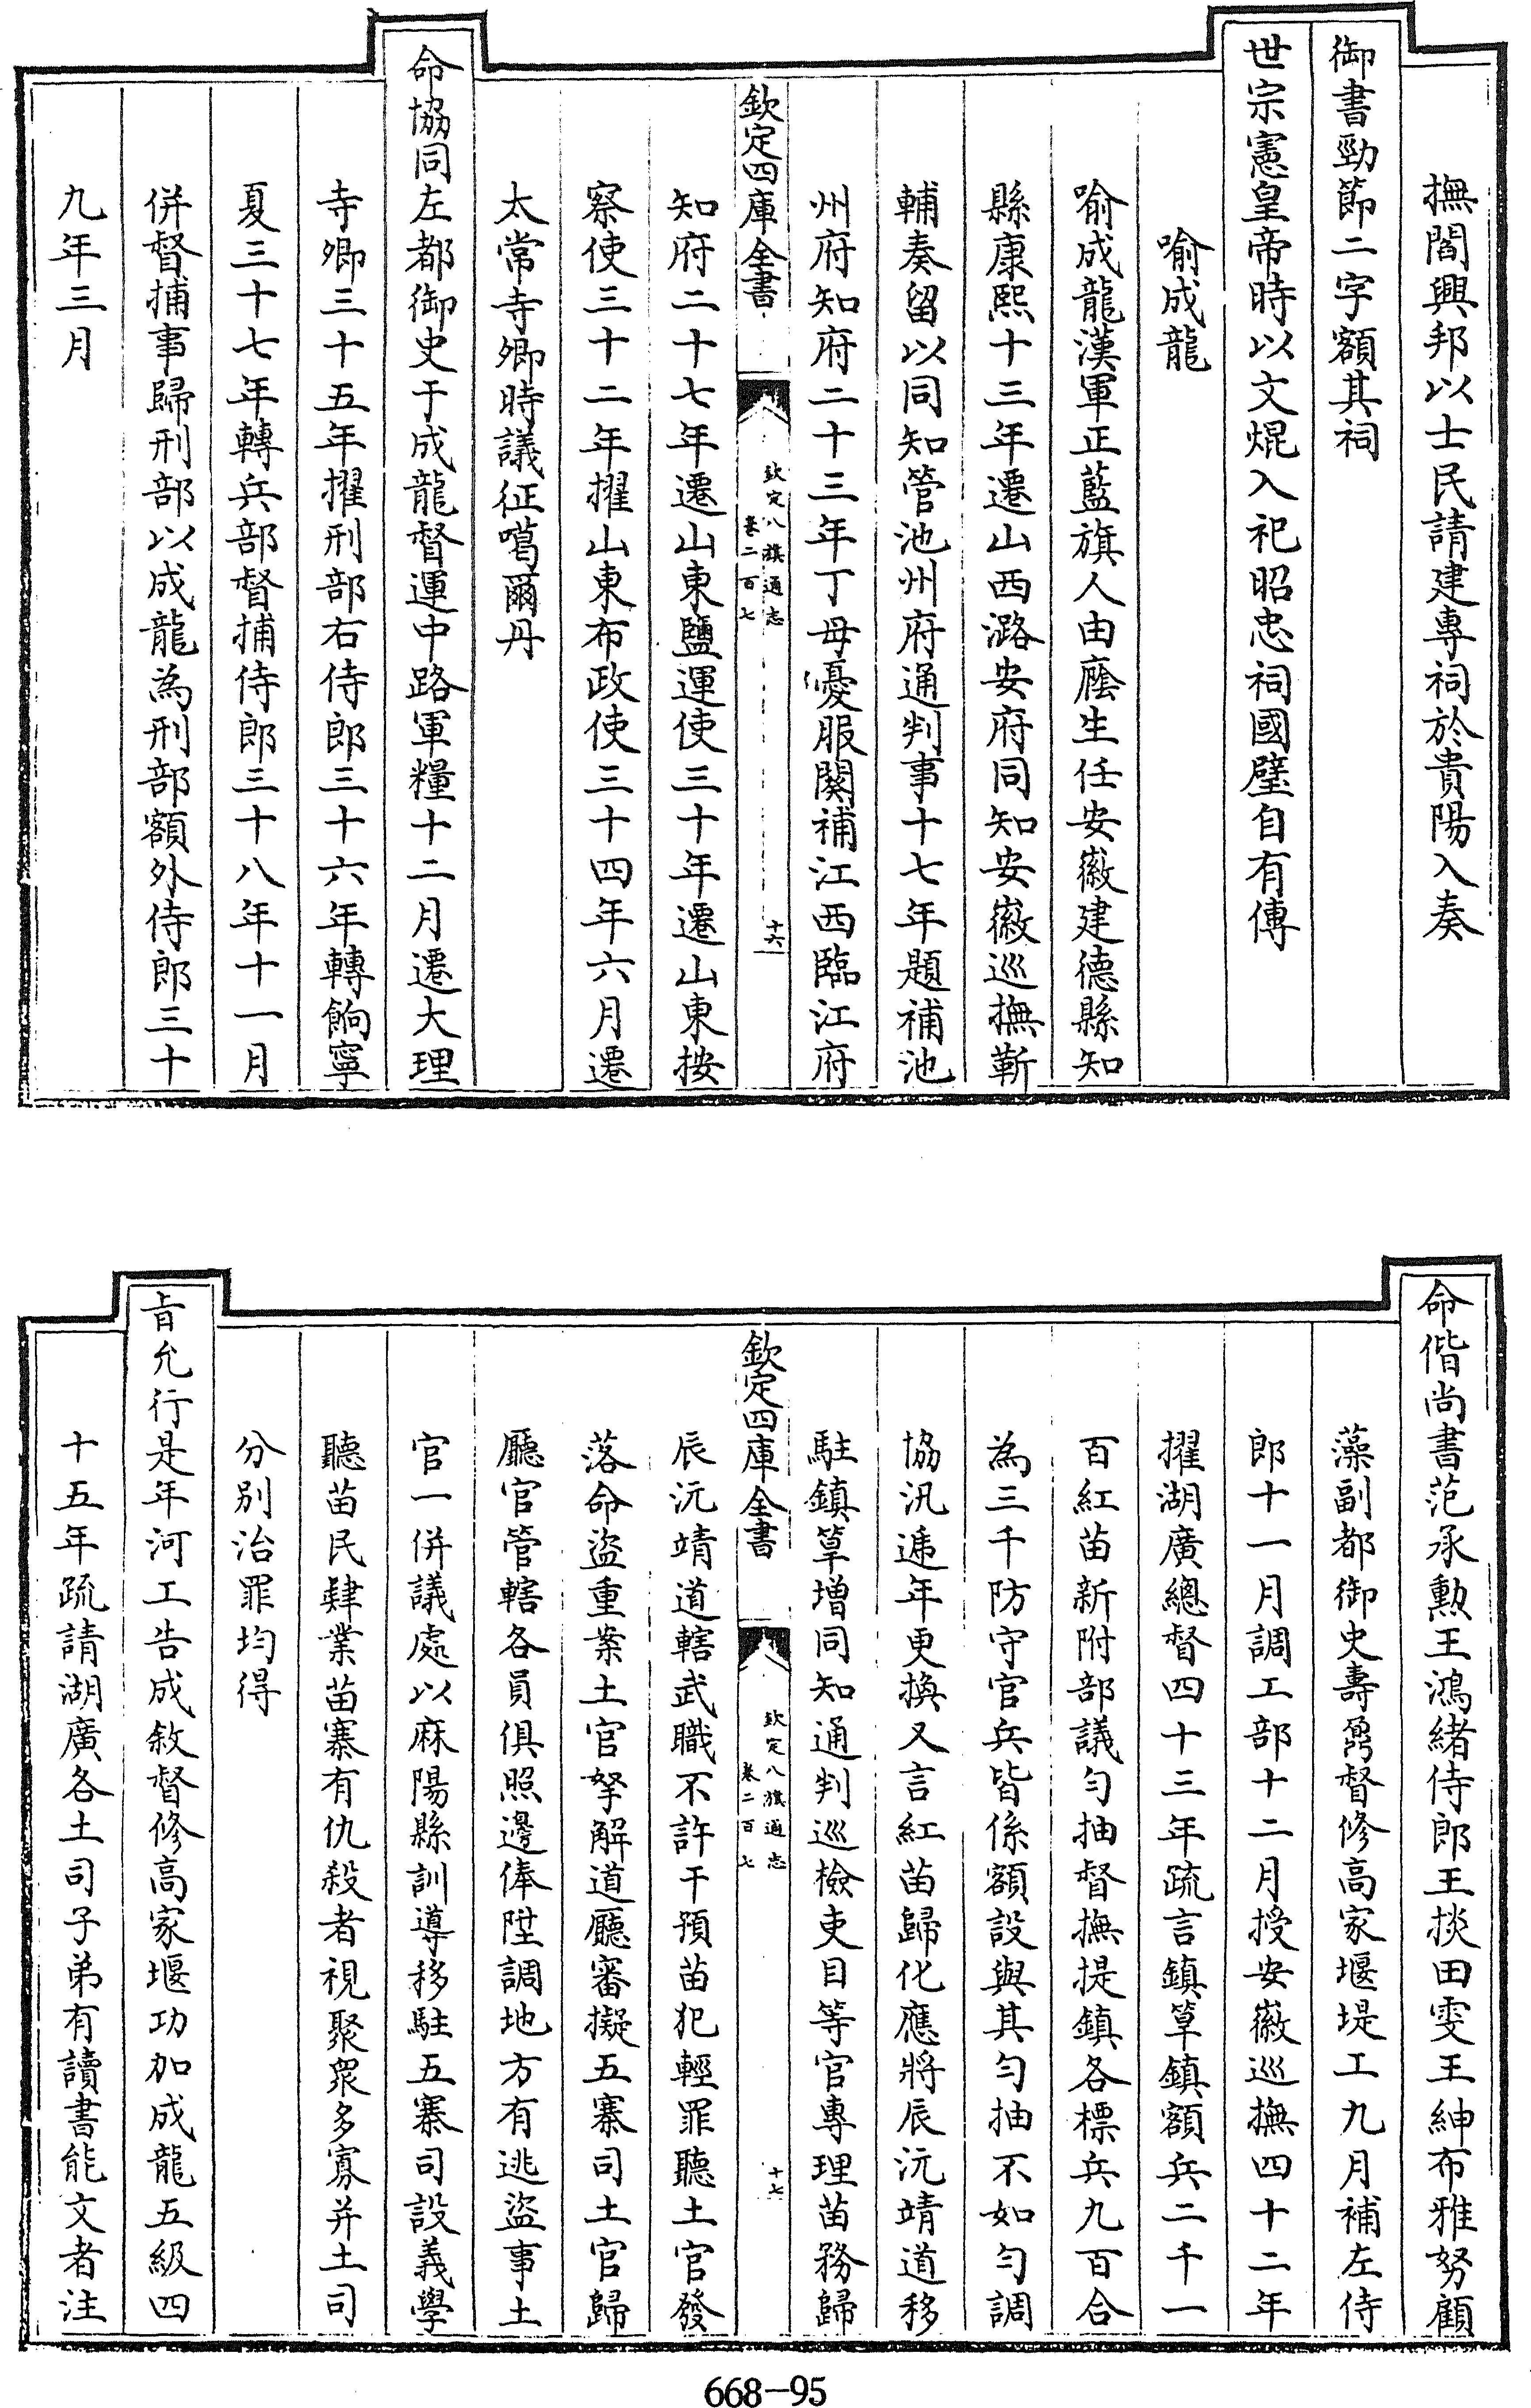 撫閻興邦以士民請建專祠於貴陽入奏
御書勁節二字額其祠
世宗憲皇帝時以文焜入祀昭忠祠國璧自有傳
喻成龍
喻成龍漢軍正藍旗人由廕生任安徽建德縣知
縣康熙十三年遷山西潞安府同知安徽巡撫靳
輔奏留以同知管池州府通判事十七年題補池
州府知府二十三年丁母憂服闋補江西臨江府
欽定四庫全書
欽定八旗通志
卷二百七
十六
知府二十七年遷山東鹽運使三十年遷山東按
察使三十二年擢山東布政使三十四年六月遷
太常寺卿時議征噶爾丹
命協同左都御史于成龍督運中路軍糧十二月遷大理
寺卿三十五年擢刑部右侍郎三十六年轉餉寧
夏三十七年轉兵部督捕侍郎三十八年十一月
併督捕事歸刑部以成龍為刑部額外侍郎三十
九年三月
命偕尚書范承勲王鴻緒侍郎王掞田雯王紳布雅努顧
藻副都御史壽鼐督修高家堰堤工九月補左侍
郎十一月調工部十二月授安徽巡撫四十二年
擢湖廣總督四十三年疏言鎮筸鎮額兵二千一
百紅苗新附部議勻抽督撫提鎮各標兵九百合
為三千防守官兵皆係額設與其勻抽不如勻調
協汛遞年更換又言紅苗歸化應將辰沅靖道移
駐鎮筸增同知通判巡檢吏目等官專理苗務歸
欽定四庫全書
欽定八旗通志
卷二百七
十七
辰沅靖道轄武職不許干預苗犯輕罪聽土官發
落命盜重案土官拏解道廳審擬五寨司土官歸
廳官管轄各員俱照邊俸陞調地方有逃盜事土
官一併議處以麻陽縣訓導移駐五寨司設義學
聽苗民肄業苗寨有仇殺者視聚衆多寡并土司
分別治罪均得
旨允行是年河工告成敘督修高家堰功加成龍五級四
十五年疏請湖廣各土司子弟有讀書能文者注
668-95